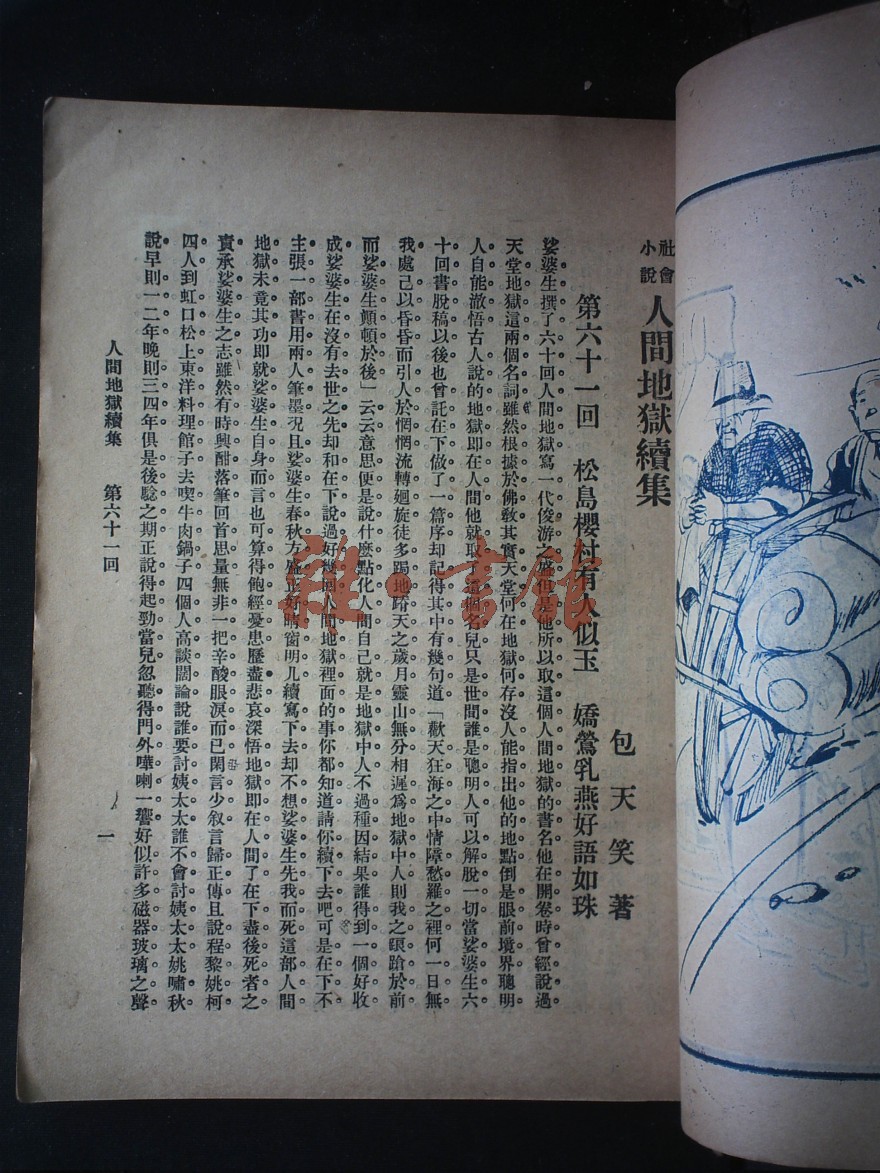 社會
小說
人間地獄續集
包天笑著
第六十一回 松島櫻村有人似玉 嬌鶯乳燕好語如珠
娑婆生撰了六十回人間地獄寫一代俊游之盛但是他所以取這個人間地獄的書名他在開卷時曾經說過。
天堂地獄這兩個名詞雖然根據於佛教其實天堂何在地獄何存沒人能指出他的地點倒是眼前境界聰明
人自能澈悟古人說的地獄即在人間他就取了這個名兒只是世間誰是聰明人可以解脫一切當娑婆生六
十回書脫稿以後也曾託在下做了一篇序却記得其中有幾句道「歡天狂海之中情障愁羅之裡何一日無
我處己以昏昏而引人於惘惘流轉廻旋徒多跼地蹐天之歲月靈山無分相遲爲地獄中人則我之頤蹌於前。
而娑婆生顛頓於後」云云意思便是說什麽點化人間自己就是地獄中人不過種因結果誰得到一個好收
成娑婆生在沒有去世之先却和在下說過好幾回人間地獄裡面的事你都知道請你續下去吧可是在下不
主張一部書用兩人筆墨況且娑婆生春秋方盛正好晴窗明几續寫下去却不想娑婆生先我而死這部人間
地獄未竟其功即就娑婆生自身而言也可算得飽經憂患歷盡悲哀深悟地獄即在人間了在下盡後死者之
責承娑婆生之志雖然有時興酣落筆回首思量無非一把辛酸眼淚而已閑言少叙言歸正傳且說程黎姚柯
四人到虹口松上東洋料理館子去喫牛肉鍋子四個人高談闊論說誰要討姨太太誰不會討姨太太姚嘯秋
說早則一二年晚則三四年俱是後騐之期正說得起勁當兒忽聽得門外嘩喇一響好似許多磁器玻璃之聲
人間地獄續集 第六十一回
一
雜·書館